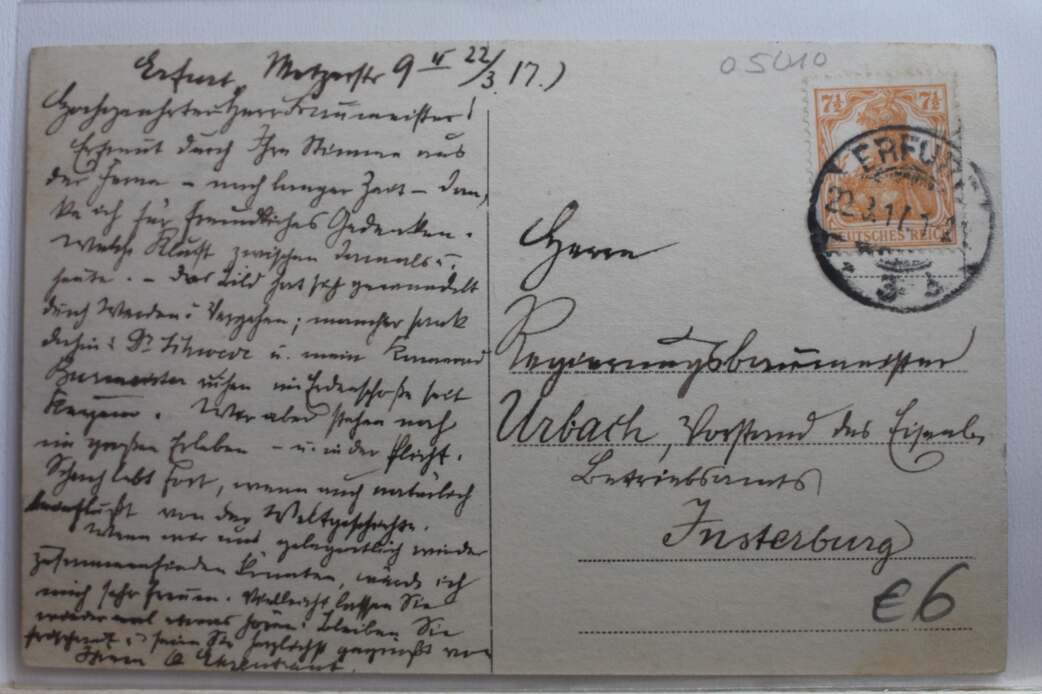 Erfurt, Metzerstr 9 II 22/3.17.)
Hochgeehrter Herr Baumeister!
Erfreut durch Ihre Stimme aus
der Ferne – nach langer Zeit – dan-
ke ich für freundliches Gedenken.
Welche Kluft zwischen damals u.
heute. – Das Bild hat sich gewandelt
durch Werden u Vergehen; mancher sank
dahin: Dr. u. mein Kamerad
Burmeister ruhen im Erdenschoße seit
Kurzem. Wir aber stehen noch
im großen Erleben – u. in der Pflicht.
Schach lebt fort, wenn auch natürlich
beeinflußt von der Weltgeschichte.
Wenn wir uns gelegentlich wieder
zusammenfinden könnten, würde ich
mich sehr freuen. Vielleicht lassen Sie
wieder mal etwas hören. Bleiben Sie
u seien Sie herzlichst gegrüßt von
Ihrem
05010
7½ 7½
DEUTSCHES REICH
ERFURT
22.3.17.
3 b
Herrn
Regierungsbaumeister
Urbach, Vorstand des Eisenb.
Betriebsamts
Insterburg
€6